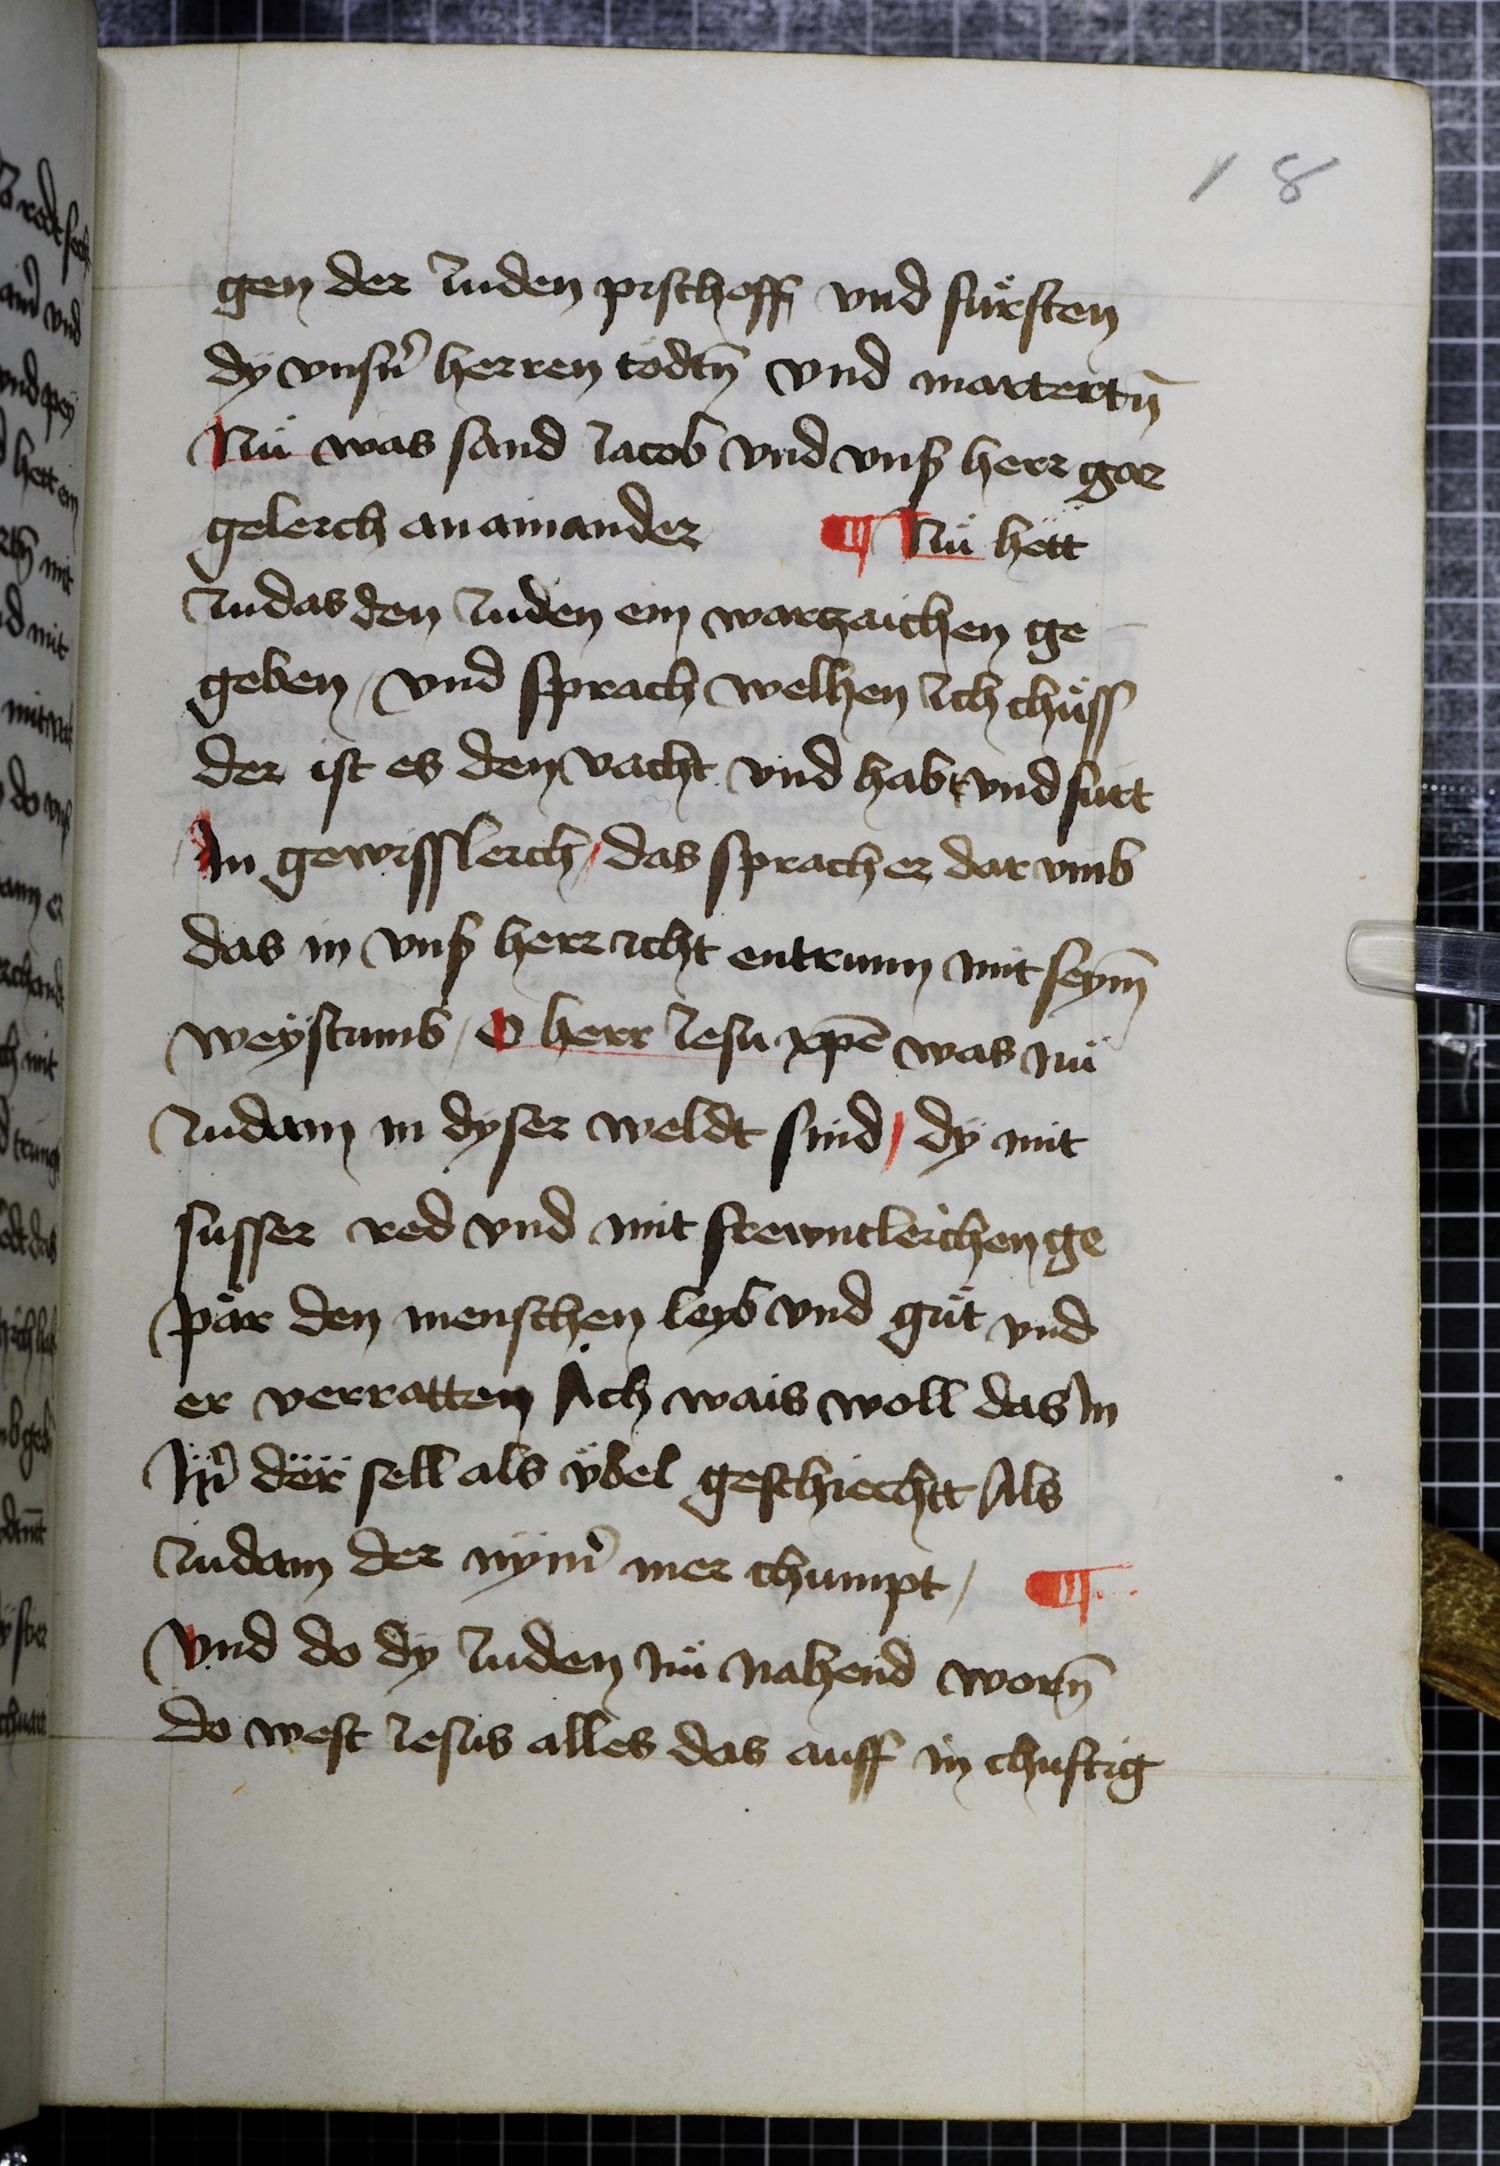 18
gen der Juden pischoff vnd fürsten
dÿ vnsñ herren tödtn̄ vnd martertn̄
Nü was sand Jacob vnd vnß herr gar
geleich an ainander ¶ Nü hett
Judas den Juden ein warzaichen ge
geben / vnd sprach welhen Jch chüss
der ist es den vacht vnd habt vnd fürt
Jn gewissleich / das sprach er dar vmb
das in vnß herr icht entrunn mit seym̄
weÿstumb / O herr Jesu xp̄e was nü
Judam in dÿser weldt sind / dÿ mit
susser red vnd mit frewntleichen ge
pär den menschen leyb vnd güt vnd
er verratten Jch wais woll das Jn
Jrer sell als übel geschiechtt Als
Judam der nÿm̄ mer chumpt / ¶
Vnd do dÿ Juden nü nahend worn̄
do west Jesus alles das auff in chuftig